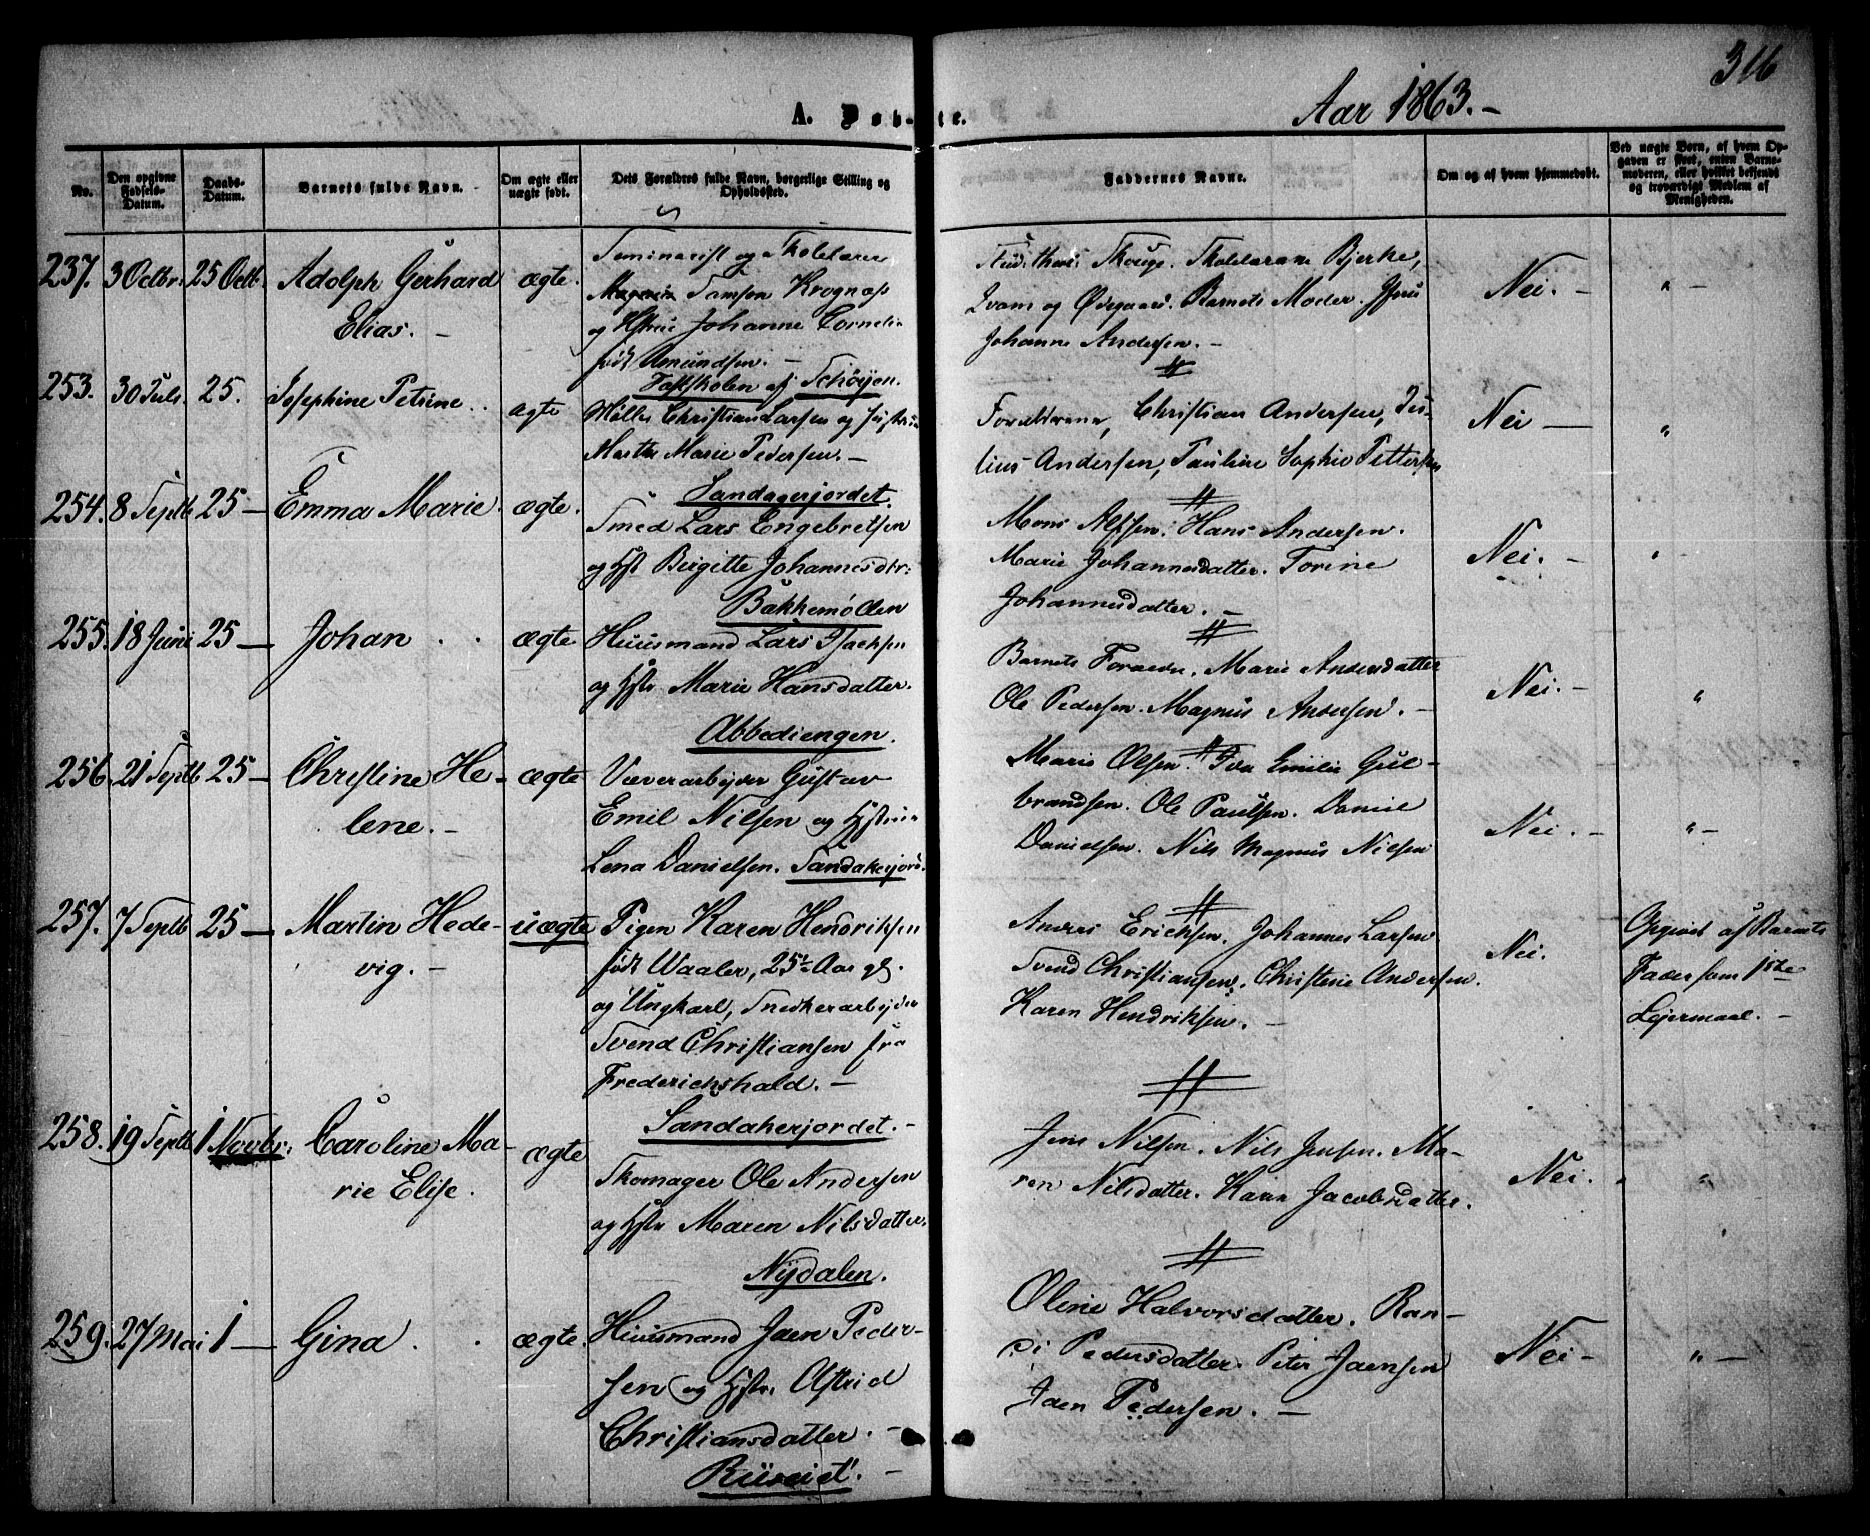 316
A. Døbte.
Aar 1863.-
No.
Den opgivne Fødsels-Datum.
Daabs-Datum.
Barnets fulde Navn.
Om ægte eller uægte født.
Dets Forældres fulde Navn, borgerlige Stilling og Opholdssted.
Faddernes Navne.
Om og af hvem hjemmedøbt.
Ved uægte Børn, af hvem Opgaven er skeet, enten Barnemoderen, eller hvilket bekjendt og troværdigt Medlem af Menigheden.
237. 3 Octbr. 25 Octb. Adolph Gerhard ægte.
Elias. -
Seminarist og Skolelærer
Samson Krognæs
og Hustrue Johanne Corneli-
født Amundsen. -
Skouge. Skolelærerne Bjerke,
og Ødegaard. Barnets Moder. Jfru
Johanne Andersen. -
Nei. - " -
Schøijen.
253. 30 Juli. 25. Josephine Petrine. ægte
Christian Larsen og Hustrue
Marthe Marie Pedersen. -
Forældrene, Christian Andersen, Ju-
lius Andersen, Pauline Sophie Pettersen
Nei - "
Sandagerjordet.
254. 8 Septb 25 - Emma Marie. ægte.
Smed Lars Engebretsen
og Hst Birgitte Johannesdtr:
Bakkemøllen
Mons Alfsen. Hans Andersen.
Marie Johannesdatter. Torine
Johannesdatter. -
Nei. - " -
255. 18 Juni 25 - Johan . . ægte
Huusmand Lars Isachsen
og Hstr. Marie Hansdatter.
Abbediengen.
Barnets Forældre. Marie Andersdatter
Ole Pedersen. Magnus Andersen. -
Nei. - "
256. 21 Septb 25 - Christine He- ægte
lene. -
Væverarbejder Gustav
Emil Nilsen og Hstrue
Lena Danielsen. Sandakerjord.
Marie Olsen. Eva Emilie Gul-
brandsen. Ole Paulsen. Daniel
Danielsen. Nils Magnus Nilsen
Nei. - " -
257. 7 Septb 25 - Martin Hede- uægte
vig. -
Pigen Karen Hendriksen
født Waaler, 25½ Aar gl.
og Ungkarl, Snedkerarbejder
Svend Christiansen fra
Frederichshald. -
Sandakerjordet. -
Anders Erichsen. Johannes Larsen
Svend Christiansen. Christine Andersen.
Karen Hendriksen. -
Nei.
Opgivet af Barnets
Fader som 1ste
Lejermaal. -
258. 19 Septb 1 Novbr: Caroline Ma- ægte
rie Elise.
Skomager Ole Andersen
og Hstr Maren Nilsdatter.
Nydalen.
Jens Nilsen. Nils Jensen. Ma-
ren Nilsdatter. Karen Jacobsdatter.
Nei. "
259. 27 Mai 1 - Gina . . ægte.
Huusmand Jaen Peder-
sen og Hstr. Astrid
Christiansdatter. -
Olene Halvorsdatter. Ran-
di Pedersdatter. Peter Jaensen
Jaen Pedersen. -
Nei - " -